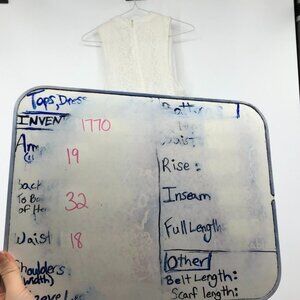 Tops, Dress
INVENT 1770
19
Back
To Bo
of He 32
Waist 18
Shoulders
(width)
Rise:
Inseam
Full Length
Other
Belt Length:
Scarf length: